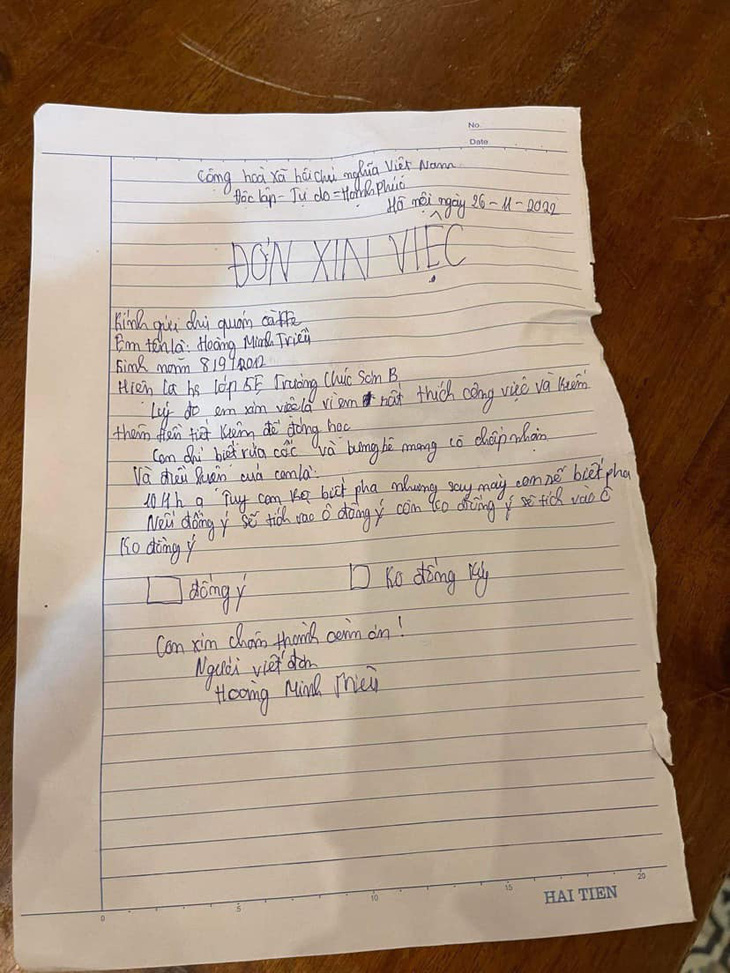 No
Date
Cộng hoà xã hội chủ nghĩa Việt Nam
Độc lập = Tự do = Hạnh phúc
Hà nội ngày 26-11-2022
ĐƠN XIN VIỆC
Kính gửi chủ quán cà fe
Em tên là: Hoàng Minh Triều
Sinh năm 8/9/2012
Hiện là hs lớp 5E Trường Chúc Sơn B
Lý do em xin việc là vì em rất thích công việc và kiếm
thêm tiền tiết kiệm để đóng học
Con chỉ biết rửa cốc và bưng bê mang cô chấp nhận
Và điều kiện của con là:
10 4h ạ Tuy con ko biết pha nhưng sau này con sẽ biết pha
Nếu đồng ý sẽ tích vào ô đồng ý còn ko đồng ý sẽ tích vào ô
ko đồng ý
đồng ý
Ko đồng ý
Con xin chân thành cảm ơn!
Người viết đơn
Hoàng Minh Triều
0 5 10 15 20
HAI TIEN